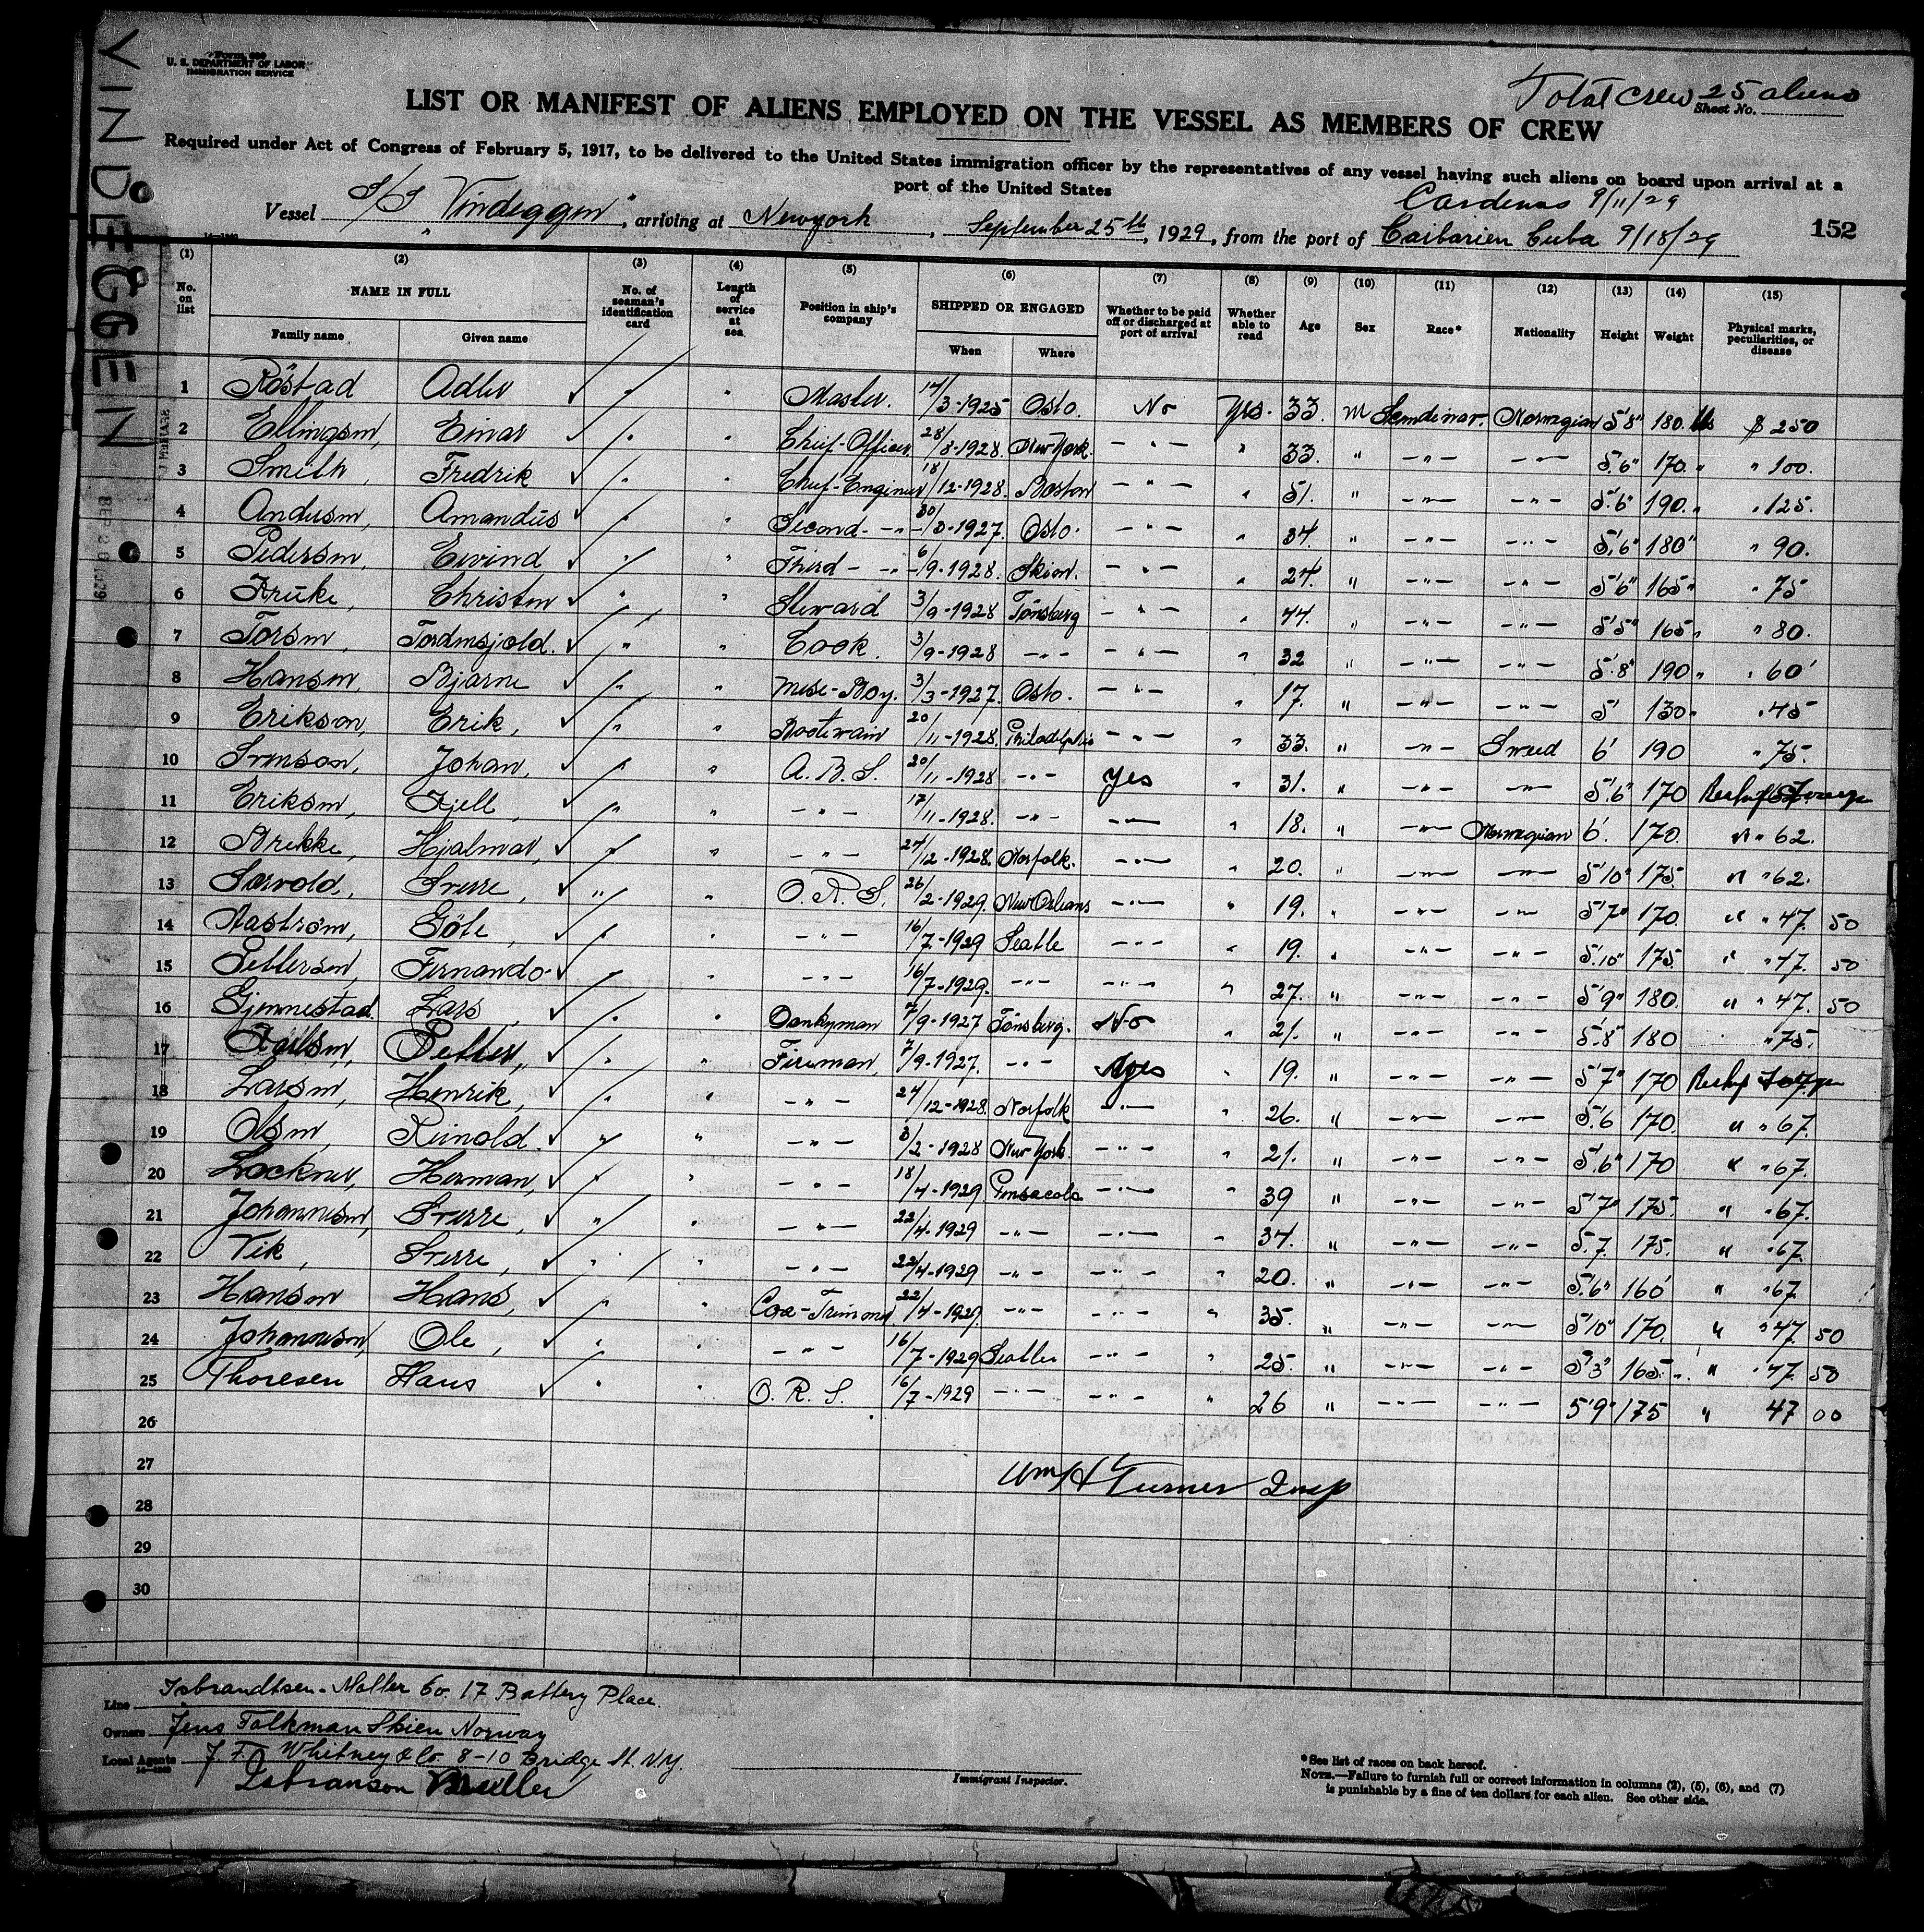 VINDEGGEN
U. S. DEPARTMENT OF LABOR
IMMIGRATION SERVICE
Total crew 25 aliens
Sheet No.
LIST OR MANIFEST OF ALIENS EMPLOYED ON THE VESSEL AS MEMBERS OF CREW
Required under Act of Congress of February 5, 1917, to be delivered to the United States immigration officer by the representatives of any vessel having such aliens on board upon arrival at a
port of the United States
Cardenas 9/11/29
Vessel S/S "Vindeggen", arriving at Newyork, September 25th, 1929, from the port of Caibarien Cuba 9/18/29
152
(1) (2) (3) (4) (5) (6) (7) (8) (9) (10) (11) (12) (13) (14) (15)
No. on list NAME IN FULL No. of seaman's identification card Length of service at sea Position in ship's company SHIPPED OR ENGAGED Whether to be paid off or discharged at port of arrival Whether able to read Age Sex Race* Nationality Height Weight Physical marks, peculiarities, or disease
Family name Given name When Where
1 Röstad Adler Master. 3-1925 Oslo. No Yes. 33. m Scandinav. Norwegian 5'8" 180 lbs $ 250
2 Ellingsen, Einar " " Chief-Officer 28/8-1928. New York. - " - " 33. " - " - - " - 5'.6" 170. " " 100.
3 Smith, Fredrik " " Chief-Engineer 18/12-1928. Boston - " - " 51. " - " - - " - 5'.6" 190. " " 125.
4 Andersen, Amandus " " Second - " - 1927. Oslo. - " - " 34. " - " - - " - 5'.6" 180 " " 90.
5 Pedersen, Eivind " " Third - " - 6/9-1928. Skien. - " - " 24. " - " - - " - 5'6" 165 " " 75
6 Kruke, Christen " " Steward 3/9-1928 Tönsberg - " - " 44. " - " - - " - 5'5" 165 " " 80.
7 Torsen, Tordenskjold. " " Cook. 3/9-1928 - " - - " - " 32 " - " - - " - 5'.8" 190 " " 60
8 Hansen, Bjarne " " Mess-Boy. 3/3-1927. Oslo. - " - " 17. " - " - - " - 5' 130 " " 45
9 Erikson, Erik, " " Bootswain 20/11-1928. Philadelphia - " - " 33. " - " - Sweed 6' 190 " 75.
10 Svenson, Johan, " " A.B.S. 20/11-1928 - " - Yes " 31. " - " - - " - 5'.6" 170
11 Eriksen, Kjell, " " - " - 17/11-1928. - " - - " - " 18. " - " - Norwegian 6'. 170. " " 62.
12 Brekke, Hjalmar, " " - " - 27/12-1928. Norfolk. - " - " 20. " - " - - " - 5'10" 175. " " 62.
13 Sorvold, Sverre, " " O.R.S. 26/2-1929. New Orleans - " - " 19. " - " - - " - 5'7" 170. " " 47. 50
14 Aaström, Göte, " " - " - 16/7-1929 Seatle - " - " 19. " - " - - " - 5'.10" 175. " " 47. 50
15 Petterson, Fernando " " - " - 16/7-1929. - " - - " - " 27. " - " - - " - 5'9" 180. " " 47. 50
16 Gjennestad. Lars, " " Donkyman 7/9-1927 Tönsberg. No " 21. " - " - - " - 5'.8" 180 " 75.
17 Petter, " " Fireman, 7/9-1927. - " - Yes " 19. " - " - - " - 5'7" 170
18 Larsen, Henrik, " " - " - 27/12-1928. Norfolk - " - " 26. " - " - - " - 5'.6 170. " " 67.
19 Olsen, Reinold. " " - " - 8/2-1928 New York. - " - " 21. " - " - - " - 5'.6" 170 " " 67.
20 Lockner, Herman, " " - " - 18/4-1929 Pensacola - " - " 39 " - " - - " - 5'7" 175. " " 67.
21 Johannesen, Sverre, " " - " - 22/4-1929 - " - - " - " 34. " - " - - " - 5.7. 175. " " 67.
22 Vik, Sverre, " " - " - 22/4-1929 - " - - " - " 20. " - " - - " - 5'.6" 160 " " 67
23 Hansen Hans, " " Coa-Trimend. 22/4-1929. - " - - " - " 35. " - " - - " - 5'10" 170. " " 47 50
24 Johannesen, Ole, " " - " - 16/7-1929 Seatler - " - " 25. " - " - - " - 5'3" 165. " " " 47. 50
25 Thoresen Hans " " O.R.S. 16/7-1929 - " - - " - " 26 " - " - - " - 5'9" 175 " 47 00
26
27 Wm H Turner Insp
28
29
30
Line Isbrandtsen-Moller Co. 17 Battery Place.
Owners Jens Folkman Skien Norway
Local Agents J F Whitney & Co. 8-10 Bridge St. N.Y.
Isbranson Mueller
Immigrant Inspector.
*See list of races on back hereof.
NOTE.—Failure to furnish full or correct information in columns (2), (5), (6), and (7)
is punishable by a fine of ten dollars for each alien. See other side.